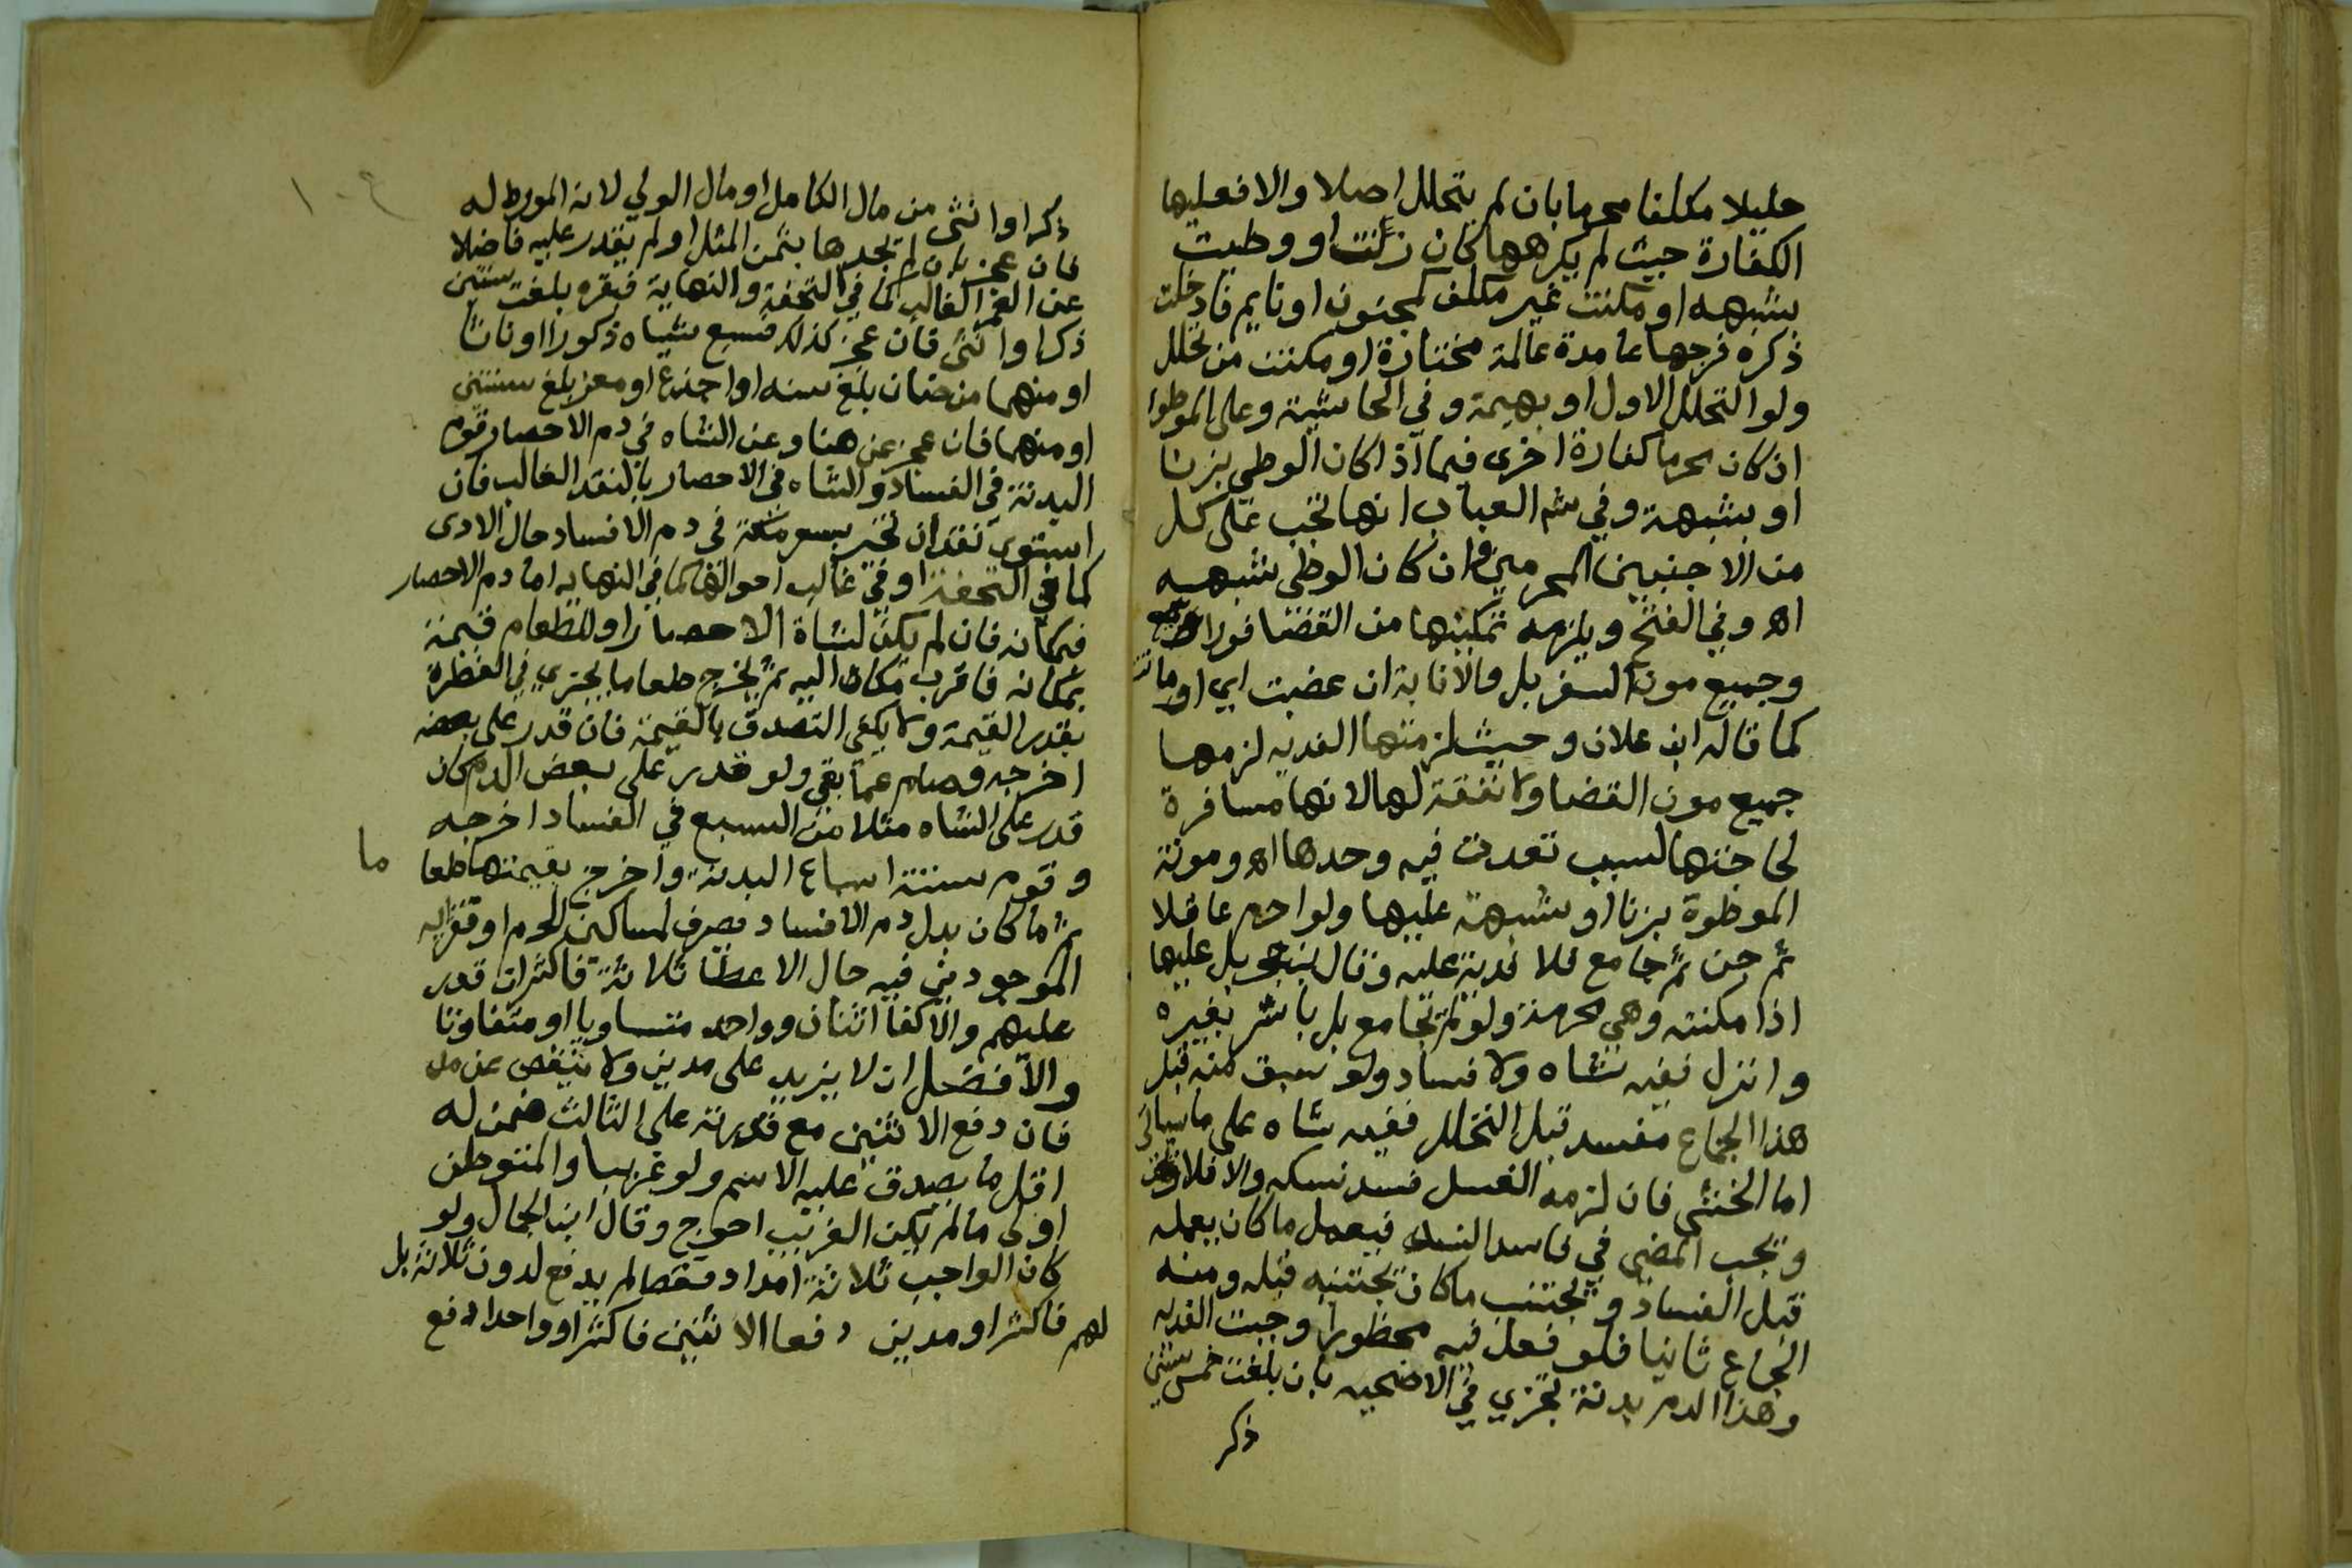 حليلا مكلفا محرما بان لم يتحلل اصلا والا فعليها
الكفارة حيث لم يكرهها كان زنت او وطئت
بشبهه او مكنت غير مكلف كمجنون او نايم فادخلت
ذكره فرجها عامدة عالمة مختارة او مكنت من تحلل
ولو التحلل الاول او بهيمة وفي الحاشية وعلى الموطوا
ان كان محرما كفارة اخرى فيما اذا كان الوطي بزنا
او بشبهة وفي شر العباب انها تجب على كل
من الاجنبيين المحرمين وان كان الوطي بشبهه
اه وفي الفتح ويلزمه تمكينها من القضا فورا
وجميع مون السفر بل والانابة ان عضبت اي او ماتت
كما قاله ابن علان وحيث لزمتها الفديه لزمها
جميع مون القضا ولا نفقة لها لانها مسافرة
لحاجتها لسبب تعدت فيه وحدها اه ومونة
الموطوة بزنا او شبهة عليها ولو احرم عاقلا
ثم جن ثم جامع فلا فدية عليه وقال بل عليها
اذا مكنته وهي محرمة ولو لم تجامع بل باشر بغيره
وانزل ففيه شاه ولا فساد ولو سبق منه قبل
هذا الجماع مفسد قبل التحلل ففيه شاه على ما سياتي
اما الخنثى فان لزمه الغسل فسد نسكه والا فلا
ويجب المضي في فاسد النسك فيعمل ما كان يعمله
قبل الفساد ويجتنب ما كان يجتنبه قبله ومنه
الجماع ثانيا فلو فعل فيه محظورا وجبت الفديه
وهذا الدم بدنة تجزي في الاضحيه بان بلغت خمس سنين
ذكر
١٠٤
ذكرا وانثى من مال الكامل او مال الولي لانه المورط له
فان عجز بان لم يجدها بثمن المثل او لم يقدر عليه فاضلا
عن العمر الغالب كما في التحفة والنهاية فبقره بلغت سنتين
ذكرا وانثى فان عجز كذلك فسبع شياه ذكورا او اناثا
او منهما من ضان بلغ سنه او اجذع او معز بلغ سنتين
او منهما فان عجز عن هنا وعن الشاه في دم الاحصار قوم
البدنة في الفساد والشاه في الاحصار بالنقد الغالب فان
استوى نقدان تخير بسعر مكة في دم الافساد حال الادى
كما في التحفة او في غالب احوالها كما في النهايه اما دم الاحصار
فبمكانه فان لم يكن لشاة الاحصار او للطعام قيمة
بمكانه فاقرب مكان اليه ثم يخرج طعاما يجزي في الفطرة
بقدر القيمة ولا يكفي التصدق بالقيمة فان قدر على بعضه
اخرجه وصام عما بقي ولو قدر على بعض الدم كان
قدر على الشاه مثلا من السبع في الفساد اخرجه
وقوم ستة اسباع البدنة واخرج بقيمتها طعا ما
ثم ما كان بدل دم الافساد فصرف لمساكين الحرم او فقرايه
الموجودين فيه حال الاعطا ثلاثة فاكثر ان قدر
عليهم والا كفا اثنان وواحد متساويا او متفاوتا
والافضل ان لا يزيد على مدين ولا ينقص عن مد
فان دفع الاثنين مع قدرته على الثالث ضمن له
اقل ما يصدق عليه الاسم ولو غريبا والمتوطن
اولى ما لم يكن الغريب احوج وقال ابن الجمال ولو
كان الواجب ثلاثة امداد فقط لم يدفع لدون ثلاثة بل
لهم فاكثر او مدين دفعا الاثنين فاكثر او واحدا دفع